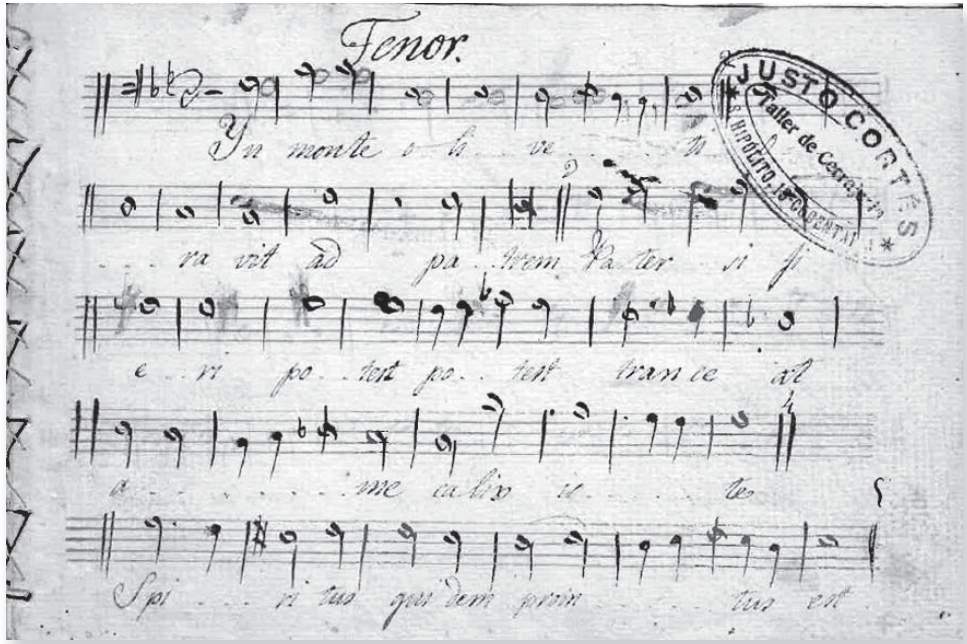 Tenor.
JUSTO CORTÉS
Taller de
S. HIPOLITO, 18
Yn monte o li ve ti
ra vit ad pa trem Pa ter si fi
e ri po test po test tran ce at
a me calix is te
Spi ri tus qui dem prom tus est